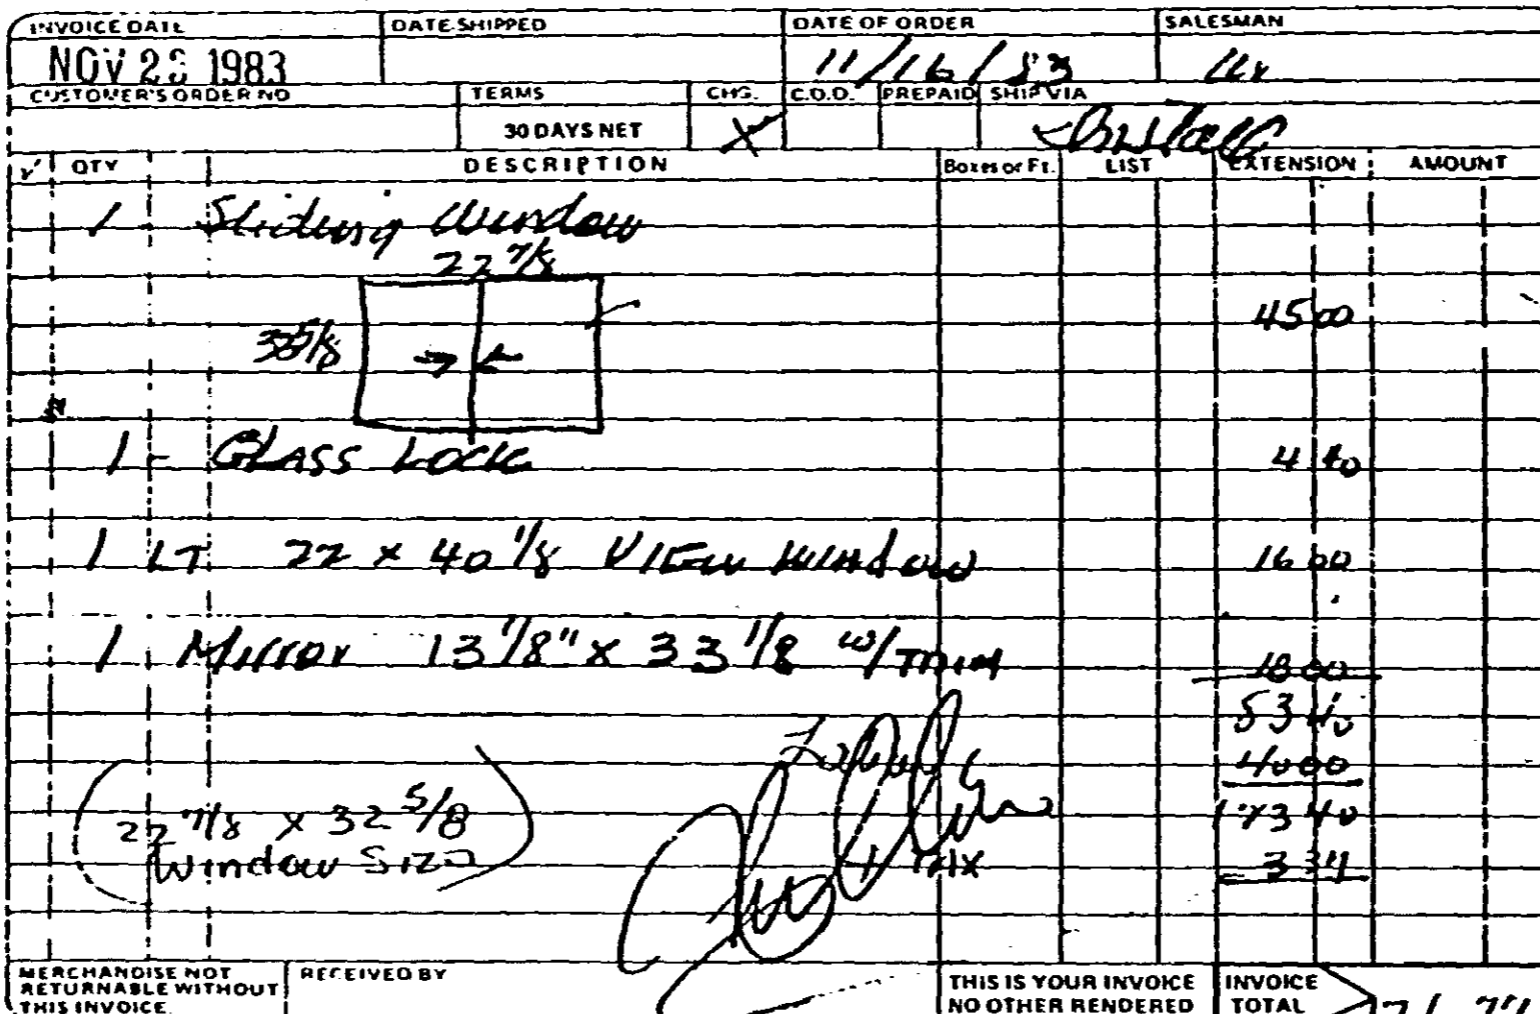 INVOICE DATE DATE SHIPPED DATE OF ORDER SALESMAN
NOV 23 1983 11/16/83
CUSTOMER'S ORDER NO TERMS CHG. C.O.D. PREPAID SHIP VIA
30 DAYS NET X Install
√ QTY DESCRIPTION Boxes or Ft. LIST EXTENSION AMOUNT
1 - Sliding Window
22 7/8
45 00
1 - GLASS LOCK 4 40
1 LT 22 x 40 1/8 VIEW WINDOW 16 00
1 Mirror 13 1/8" x 33 1/8 w/TRIM 18 00
40 00
22 7/8 x 32 5/8
Window Size
TAX 3 34
MERCHANDISE NOT
RETURNABLE WITHOUT
THIS INVOICE.
RECEIVED BY
THIS IS YOUR INVOICE
NO OTHER RENDERED
INVOICE
TOTAL